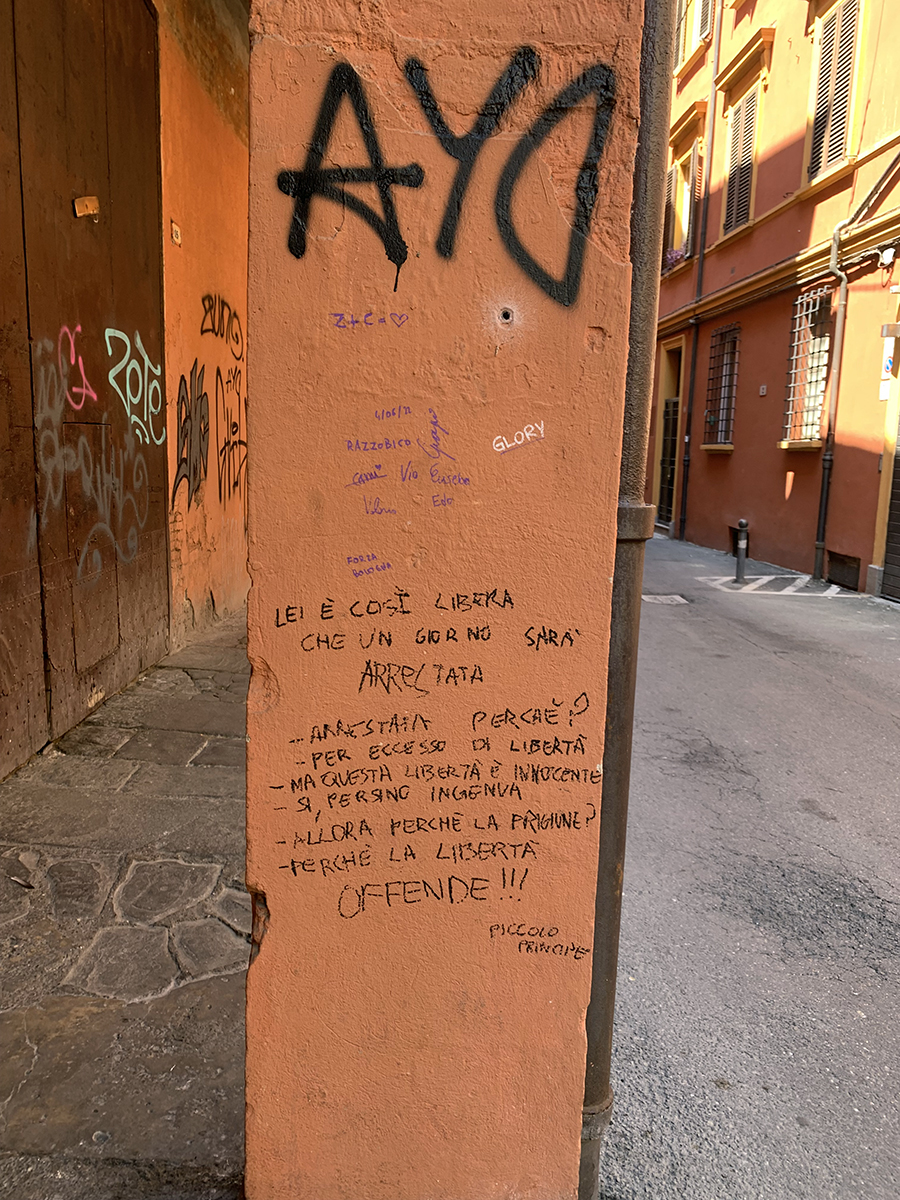 AYO
Z+C=♡
4/06/21
RAZZOBICO
GLORY
Via
Edo
FORZA
BOLOGNA
LEI È COSÌ LIBERA
CHE UN GIORNO SARA'
ARRESTATA
- ARRESTATA PERCHÈ?
- PER ECCESSO DI LIBERTÀ
- MA QUESTA LIBERTÀ È INNOCENTE
- SI, PERSINO INGENUA
- ALLORA PERCHÈ LA PRIGIUNE?
- PERCHÈ LA LIBERTÀ
OFFENDE!!!
PICCOLO
PRINCIPE